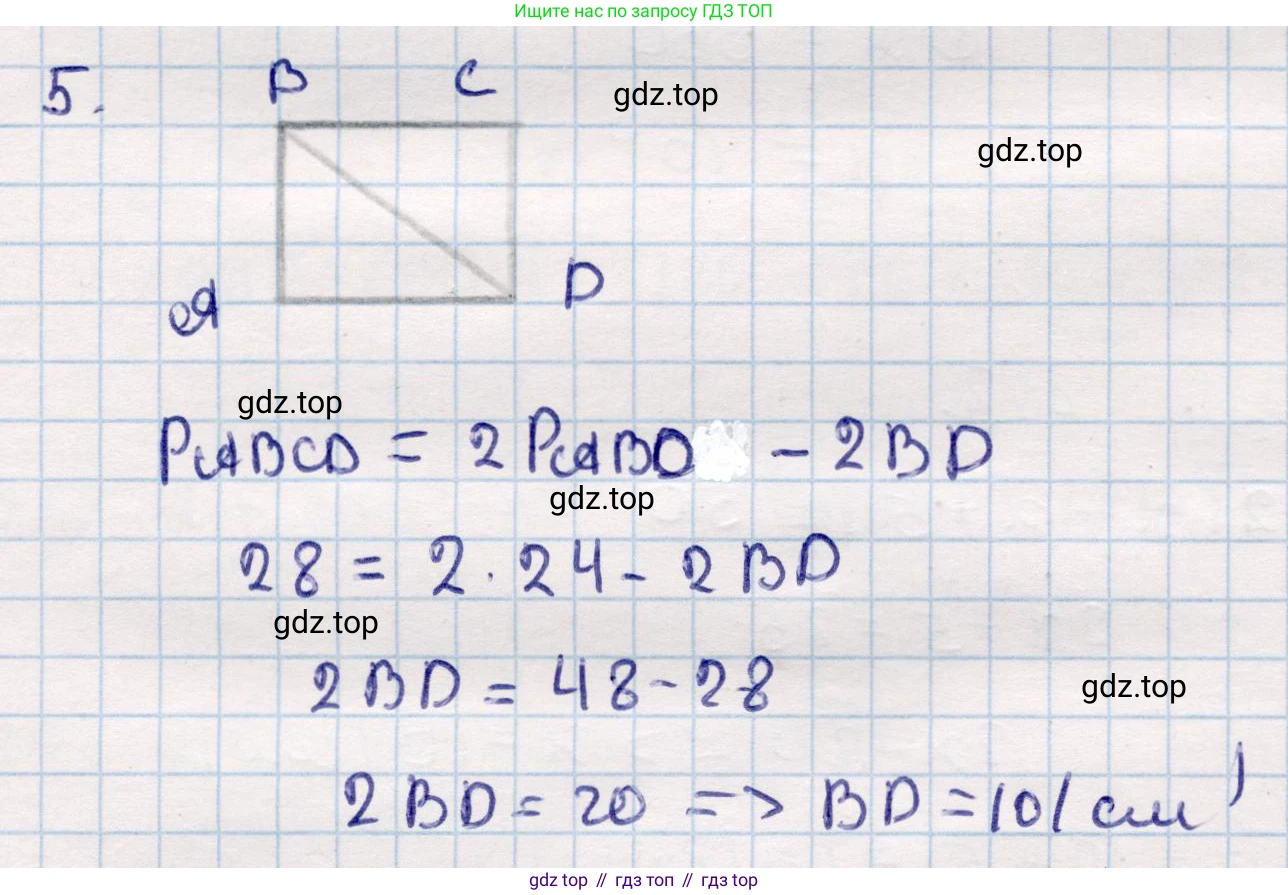 Ищите нас по запросу ГДЗ ТОП
5.
B C
gdz.top
gdz.top
A D
gdz.top
PABCD = 2 PABD - 2 BD
gdz.top
28 = 2 · 24 - 2 BD
gdz.top
2 BD = 48 - 28
gdz.top
2 BD = 20 => BD = 10 (см)
gdz top // гдз топ // гдз top